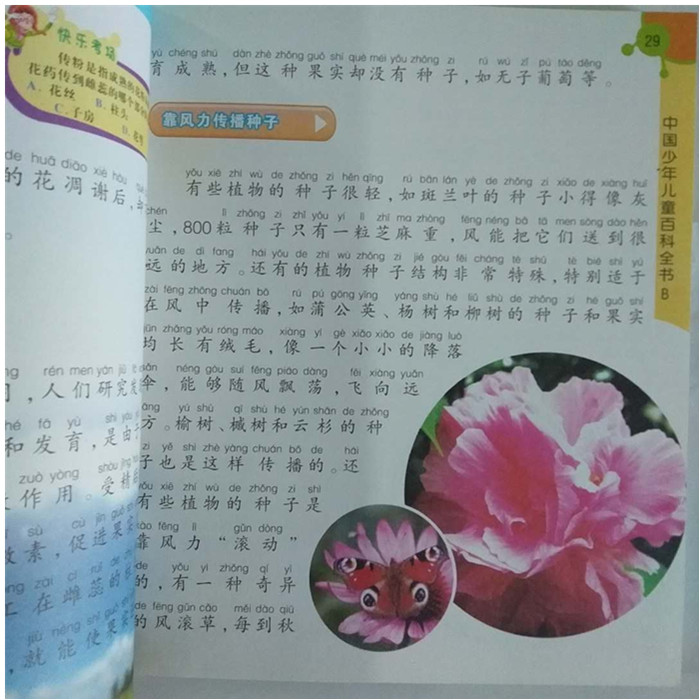 快乐考场
传粉是指成熟的花
花药传到雌蕊的哪个部
A. 花丝 B. 柱头
C. 子房 D. 花萼
de huā diāo xiè hòu
的花凋谢后，
rén men yán jiū
，人们研究发
fā yù shì yóu
和发育，是由于
zuò yòng shòu jīng
作用。受精
sù cù jìn guǒ shí
激素，促进果实
zài cí ruǐ de
在雌蕊的
jiù néng shǐ guǒ
，就能使果
29
yù chéng shú dàn zhè zhǒng guǒ shí què méi yǒu zhǒng zi rú wú zǐ pú táo děng
育成熟，但这种果实却没有种子，如无子葡萄等。
靠风力传播种子
yǒu xiē zhí wù de zhǒng zi hěn qīng rú bān lán yè de zhǒng zi xiǎo de xiàng huī
有些植物的种子很轻，如斑兰叶的种子小得像灰
chén lì zhǒng zi zhǐ yǒu yí lì zhī ma zhòng fēng néng bǎ tā men sòng dào hěn
尘，800粒种子只有一粒芝麻重，风能把它们送到很
yuǎn de dì fang hái yǒu de zhí wù zhǒng zi jié gòu fēi cháng tè shū tè bié shì yú
远的地方。还有的植物种子结构非常特殊，特别适于
zài fēng zhōng chuán bō rú pú gōng yīng yáng shù hé liǔ shù de zhǒng zi hé guǒ shí
在风中传播，如蒲公英、杨树和柳树的种子和果实
jūn zhǎng yǒu róng máo xiàng yí gè xiǎo xiǎo de jiàng luò
均长有绒毛，像一个小小的降落
sǎn néng gòu suí fēng piāo dàng fēi xiàng yuǎn
伞，能够随风飘荡，飞向远
fāng yú shù qì shù hé yún shān de zhǒng
方。榆树、槭树和云杉的种
zi yě shì zhè yàng chuán bō de hái
子也是这样传播的。还
yǒu xiē zhí wù de zhǒng zi shì
有些植物的种子是
kào fēng lì gǔn dòng
靠风力“滚动”
de yǒu yì zhǒng qí yì
的，有一种奇异
de fēng gǔn cǎo měi dào qiū
的风滚草，每到秋
中国少年儿童百科全书 B